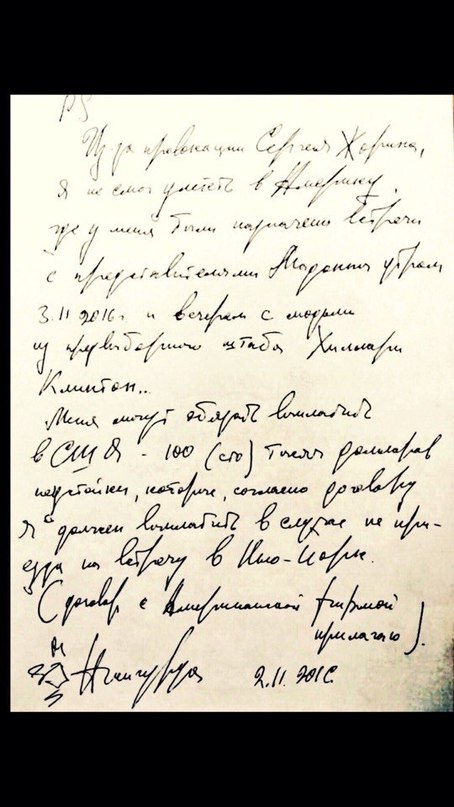 PS
Из-за провокации Сергея Жорина,
я не смог улететь в Америку,
где у меня были назначены встречи
с представителями Мадонны утром
3.11 2016г и вечером с людьми
из предвыборного штаба Хиллари
Клинтон..
Меня могут обязать выплатить
в США - 100 (сто) тысяч долларов
неустойки, которые, согласно договору
я должен выплатить в случае не при-
езда на встречу в Нью-Йорк.
(договор с Американской фирмой
прилагаю).
2.11.2016.